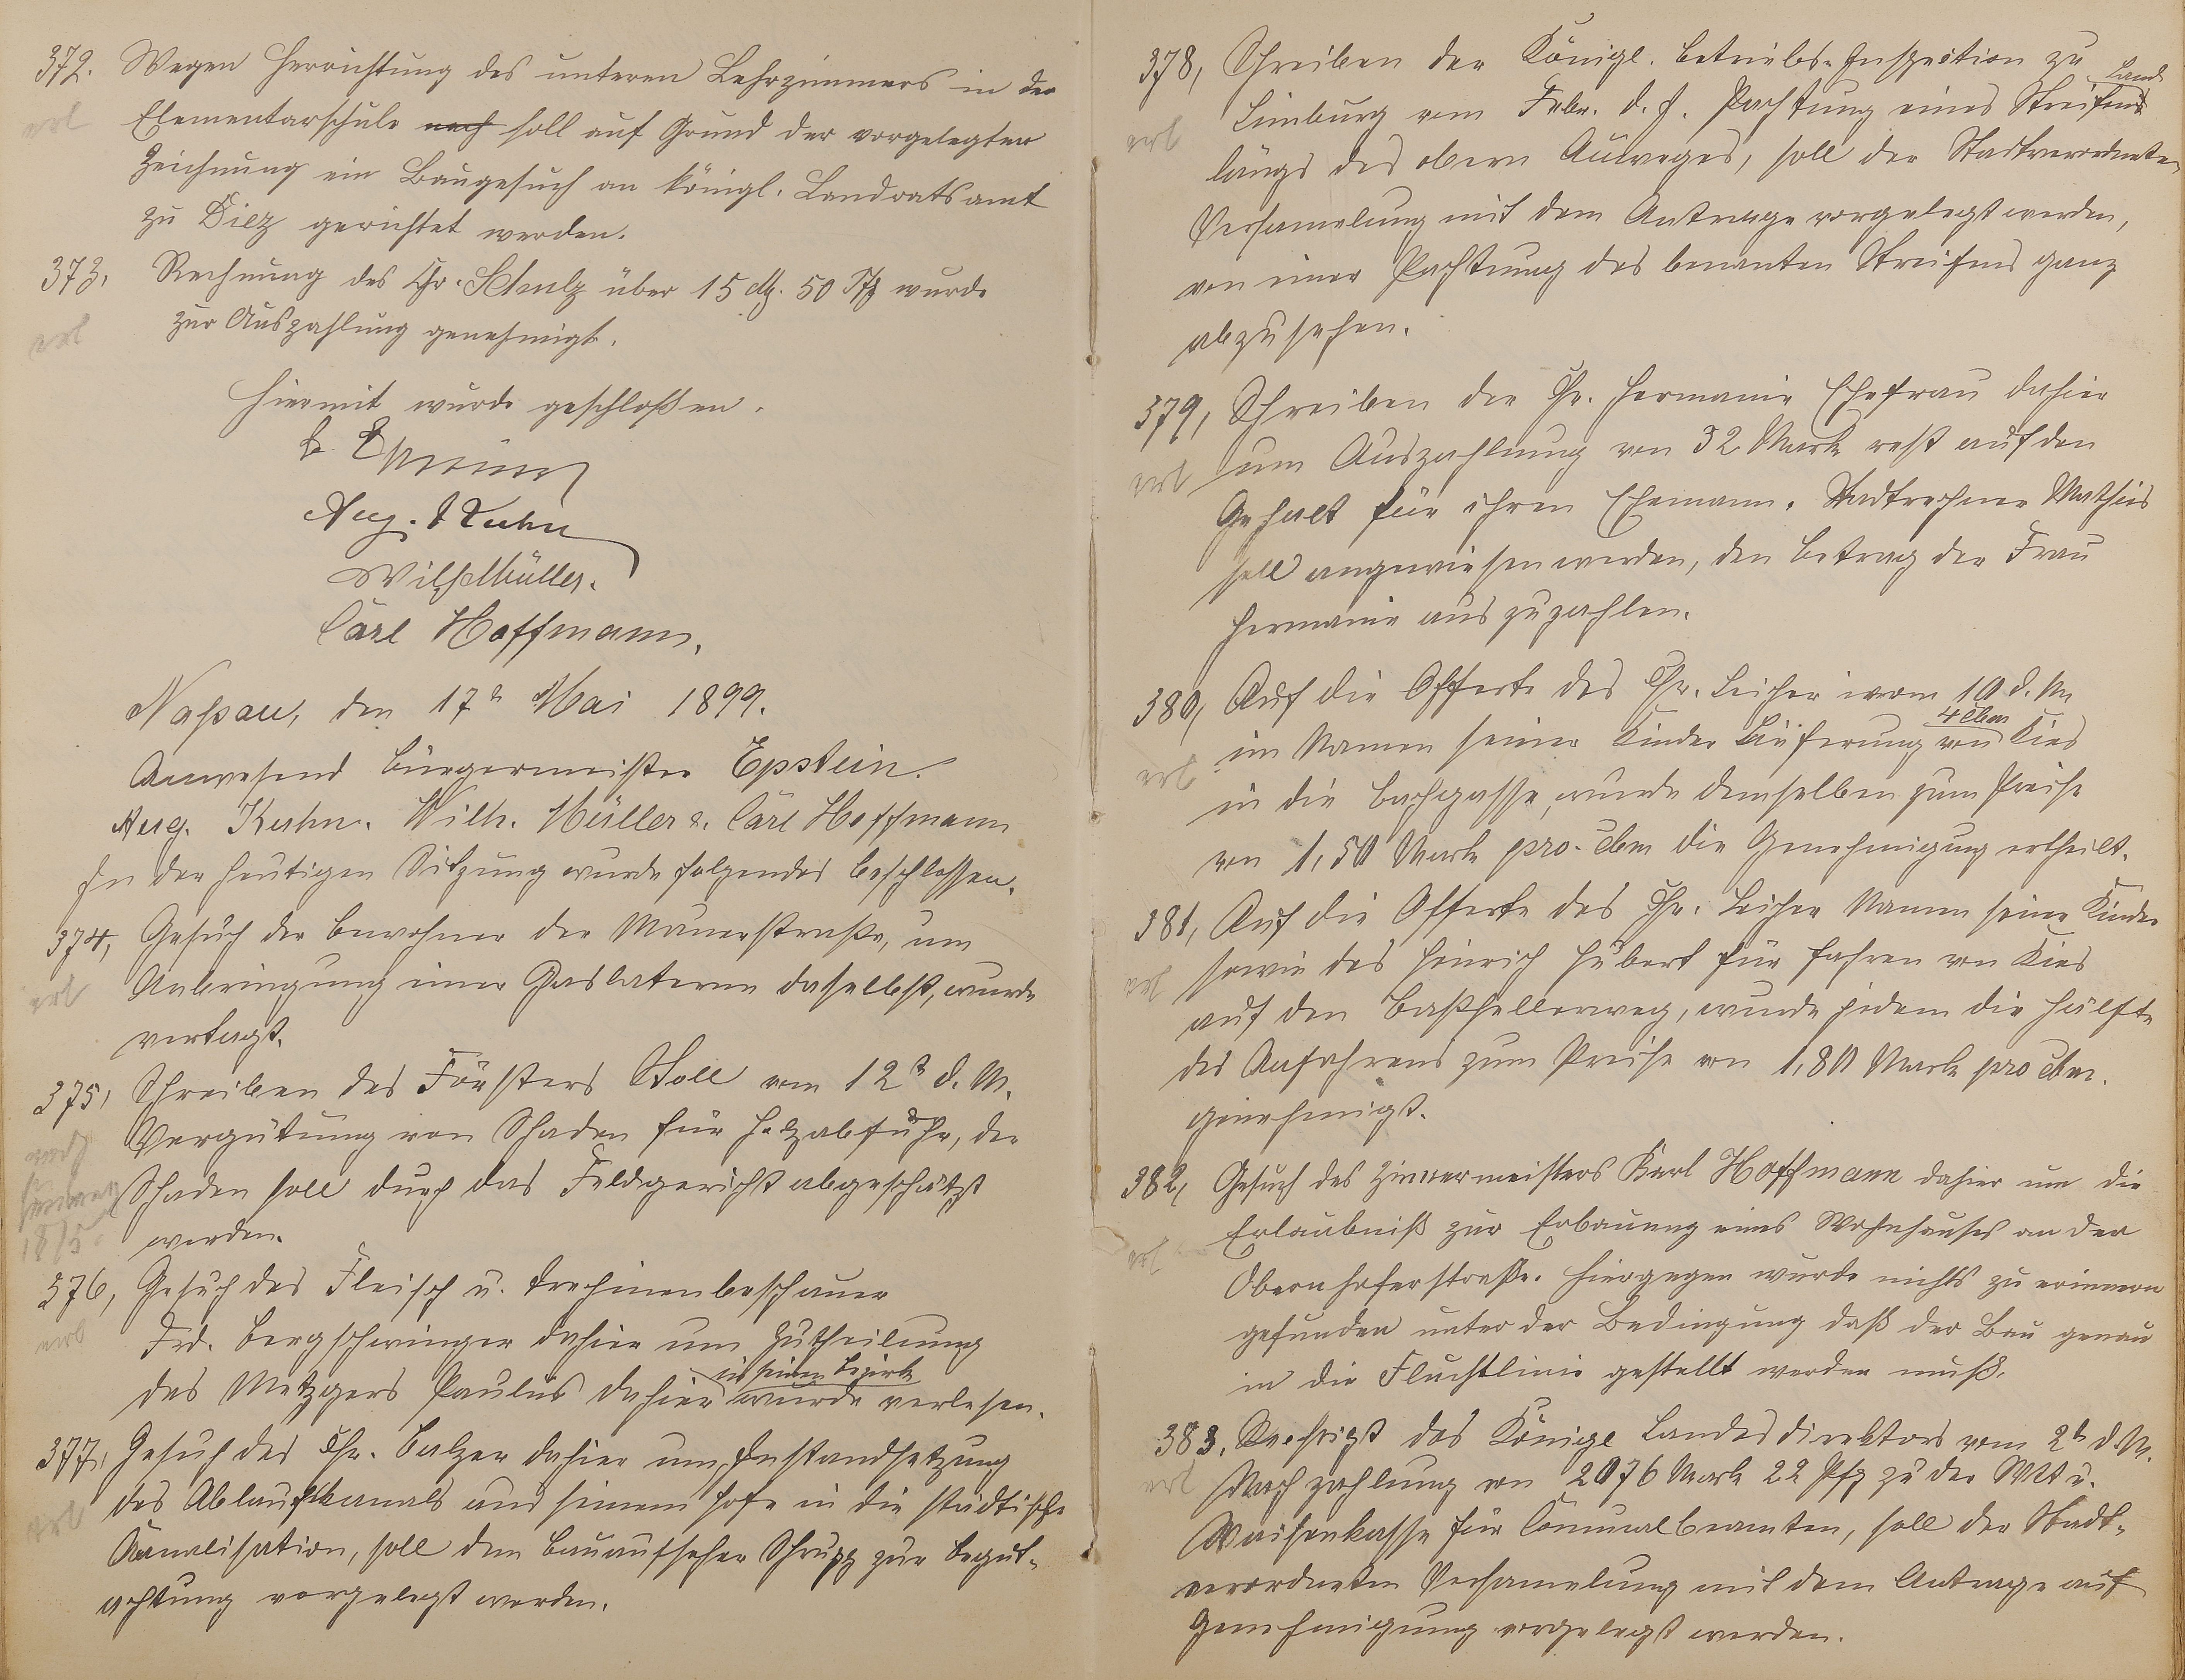 372. Wegen Herrichtung des unteren Lehrzimmers in der
erl
Elementarschule nach soll auf Grund der vorgelegten
Zeichnung ein Baugesuch an königl. Landratsamt
zu Diez gerichtet werden.
373. Rechnung des Chr. Schulz über 15 M. 50 Pfg wurde
erl
zur Auszahlung genehmigt.
Hiermit wurde geschloßen.
Epstein
Aug. Kuhn
Wilh. Müller.
Carl Hoffmann.
Naßau, den 17t Mai 1899.
Anwesend Bürgermeister Epstein.
Aug. Kuhn. Wilh. Müller u. Carl Hoffmann
In der heutigen Sitzung wurde folgendes beschlossen.
374, Gesuch der Bewohner der Mauerstraße, um
erl
Anbringung einer Gaslaterne daselbst, wurde
vertagt.
375, Schreiben des Försters Stoll vom 12t d. M.
Vergütung von Schaden für Holzabfuhr, der
Schaden soll durch das Feldgericht abgeschätzt
werden.
376, Gesuch des Fleisch u. Trechinenbeschauer
erl
Frd. Bergschwinger dahier um Zutheilung
in seinen Bezirk
des Metzgers Paulus dahier wurde verlesen.
377, Gesuch des Chr. Balzer dahier um Instandsetzung
erl
des Ablaufkanals aus seinem Hofe in die städtische
Kanalisation, soll dem Bauaufseher Schrupp zur Begut-
achtung vorgelegt werden.
378, Schreiben der Königl. Betriebs-Inspection zu
Land
erl
Limburg vom Febr. d. J. Pachtung eines Streifens
längs des obern Auweges, soll der Stadtverordneten
Versamelung mit dem Antrage vorgelegt werden,
von einer Pachtung des benanten Streifens ganz
abzusehen.
379, Schreiben der Chr. Hermanie Ehefrau dahier
erl
um Auszahlung von 32 Mark rest auf den
Gehalt für ihren Ehemann. Stadtrechner Mathies
soll angewiesen werden, den Betrag der Frau
Hermanie auszuzahlen.
380, Auf die Offerte des Chr. Leicher vom 10 d. M
4 cbm
erl
im Namen seiner Kinder Lieferung von Kies
in die Bachgasse, wurde demselben zum Preise
von 1,50 Mark pro. cbm die Genehmigung ertheilt.
381, Auf die Offerte des Chr. Leicher Namen seine Kinder
erl
sowie des Heinrich Hubert für fahren von Kies
auf den wurde jedem die Hälfte
des Anfahrens zum Preise von 1,80 Mark pro cbm.
genehmigt.
382, Gesuch des Zimmermeisters Karl Hoffmann dahier um die
erl
Erlaubniß zur Erbauung eines Wohnhauses an der
Obernhoferstraße. Hiergegen wurde nichts zu erinnern
gefunden unter der Bedingung daß der Bau genau
in die Fluchtlinie gestellt werden muß.
383. des Königl Landesdirektors vom 2t d. M.
erl
Nachzahlung von 2076 Mark 22 Pfg zu der Witt u.
Waisenkasse für Comunalbeamten, soll der Stadt-
verordneten Versamelung mit dem Antrage auf
Genehmigung vorgelegt werden.